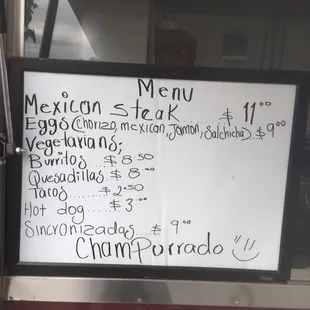 Menu
Mexican steak $ 11.00
Eggs (Chorizo, mexican, Jamon, Salchicha) $ 9.00
Vegetarians;
Burritos $ 8.50
Quesadillas $ 8.00
Tacos $ 2.50
Hot dog $ 3.00
Sincronizadas $ 9.00
Champurrado